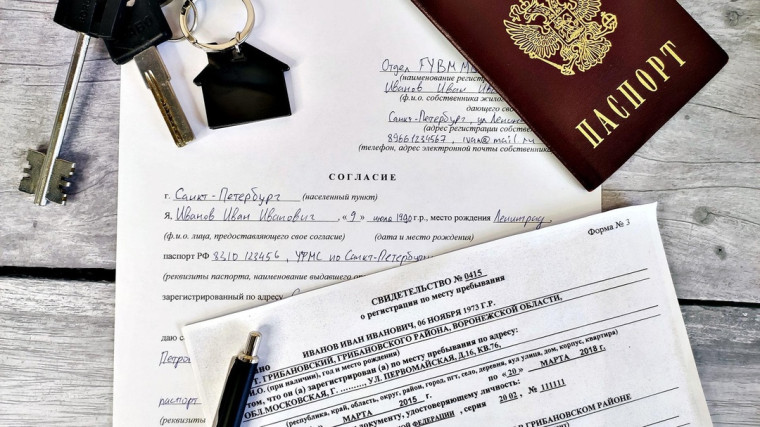 Отдел ГУВМ М
(наименование регистр
Иванов Иван Ив
(ф.и.о. собственника жилог
дающего свое
Санкт-Петербург, ул Ленин
(адрес регистрации собствен
89661234567, ivan@mail.ru
(телефон, адрес электронной почты собственник
ПАСПОРТ
СОГЛАСИЕ
г. Санкт-Петербург (населенный пункт)
Я, Иванов Иван Иванович, «9» июля 1990 г.р., место рождения Ленинград,
(ф.и.о. лица, предоставляющего свое согласие) (дата и место рождения)
паспорт РФ 8310 123456, УФМС по Санкт-Петербургу
(реквизиты паспорта, наименование выдавшего о
зарегистрированный по адресу С
даю с
Петро
паспорт
(реквизиты
Форма № 3
СВИДЕТЕЛЬСТВО № 0415
о регистрации по месту пребывания
ИВАНОВ ИВАН ИВАНОВИЧ, 06 НОЯБРЯ 1973 Г.Р.
ано
Т. ГРИБАНОВСКИЙ, ГРИБАНОВСКОГО РАЙОНА, ВОРОНЕЖСКОЙ ОБЛАСТИ,
И.О. (при наличии), год и место рождения)
том, что он (а) зарегистрирован (а) по месту пребывания по адресу:
ОБЛ.МОСКОВСКАЯ, Г. .........., УЛ. ПЕРВОМАЙСКАЯ, Д.16, КВ.76,
(республика, край, область, округ, район, город, пгт, село, деревня, аул улица, дом, корпус, квартира)
МАРТА 2015 г. по «20» МАРТА 2018 г.
документу, удостоверяющему личность:
ОЙ ФЕДЕРАЦИИ, серия 20 02, № 111111
В ГРИБАНОВСКОМ РАЙОНЕ